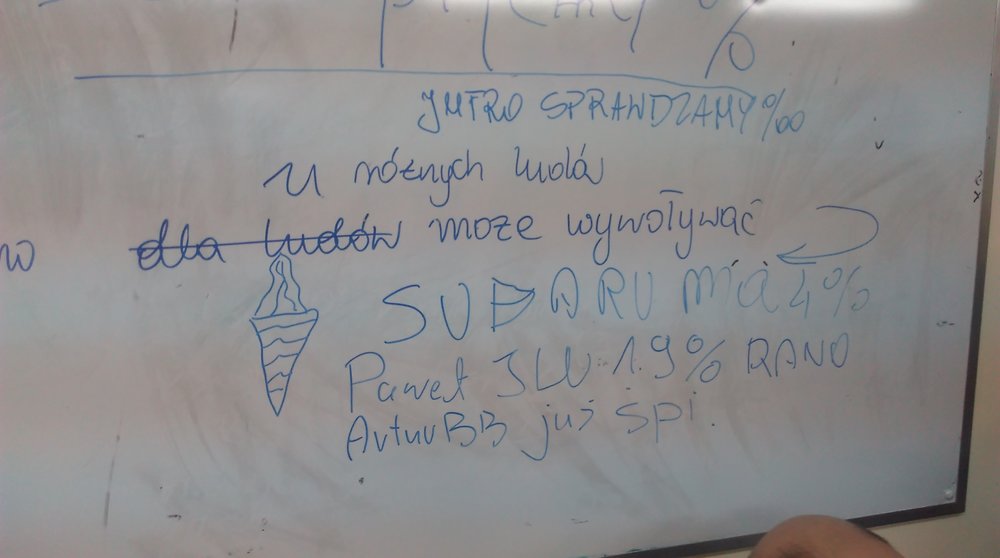 %
JUTRO SPRAWDZAMY ‰
U różnych ludów
dla ludów może wywoływać
SUBARU ma 4%
Paweł JLU-1.9% RANO
Artur BB już śpi.